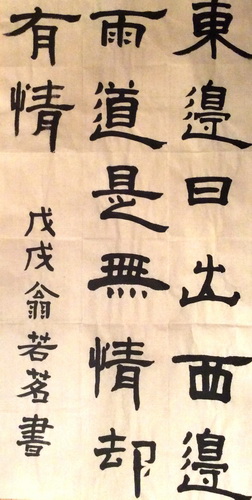 東邉日出西邉
雨道是無情却
有情
戊戌翁若茗書